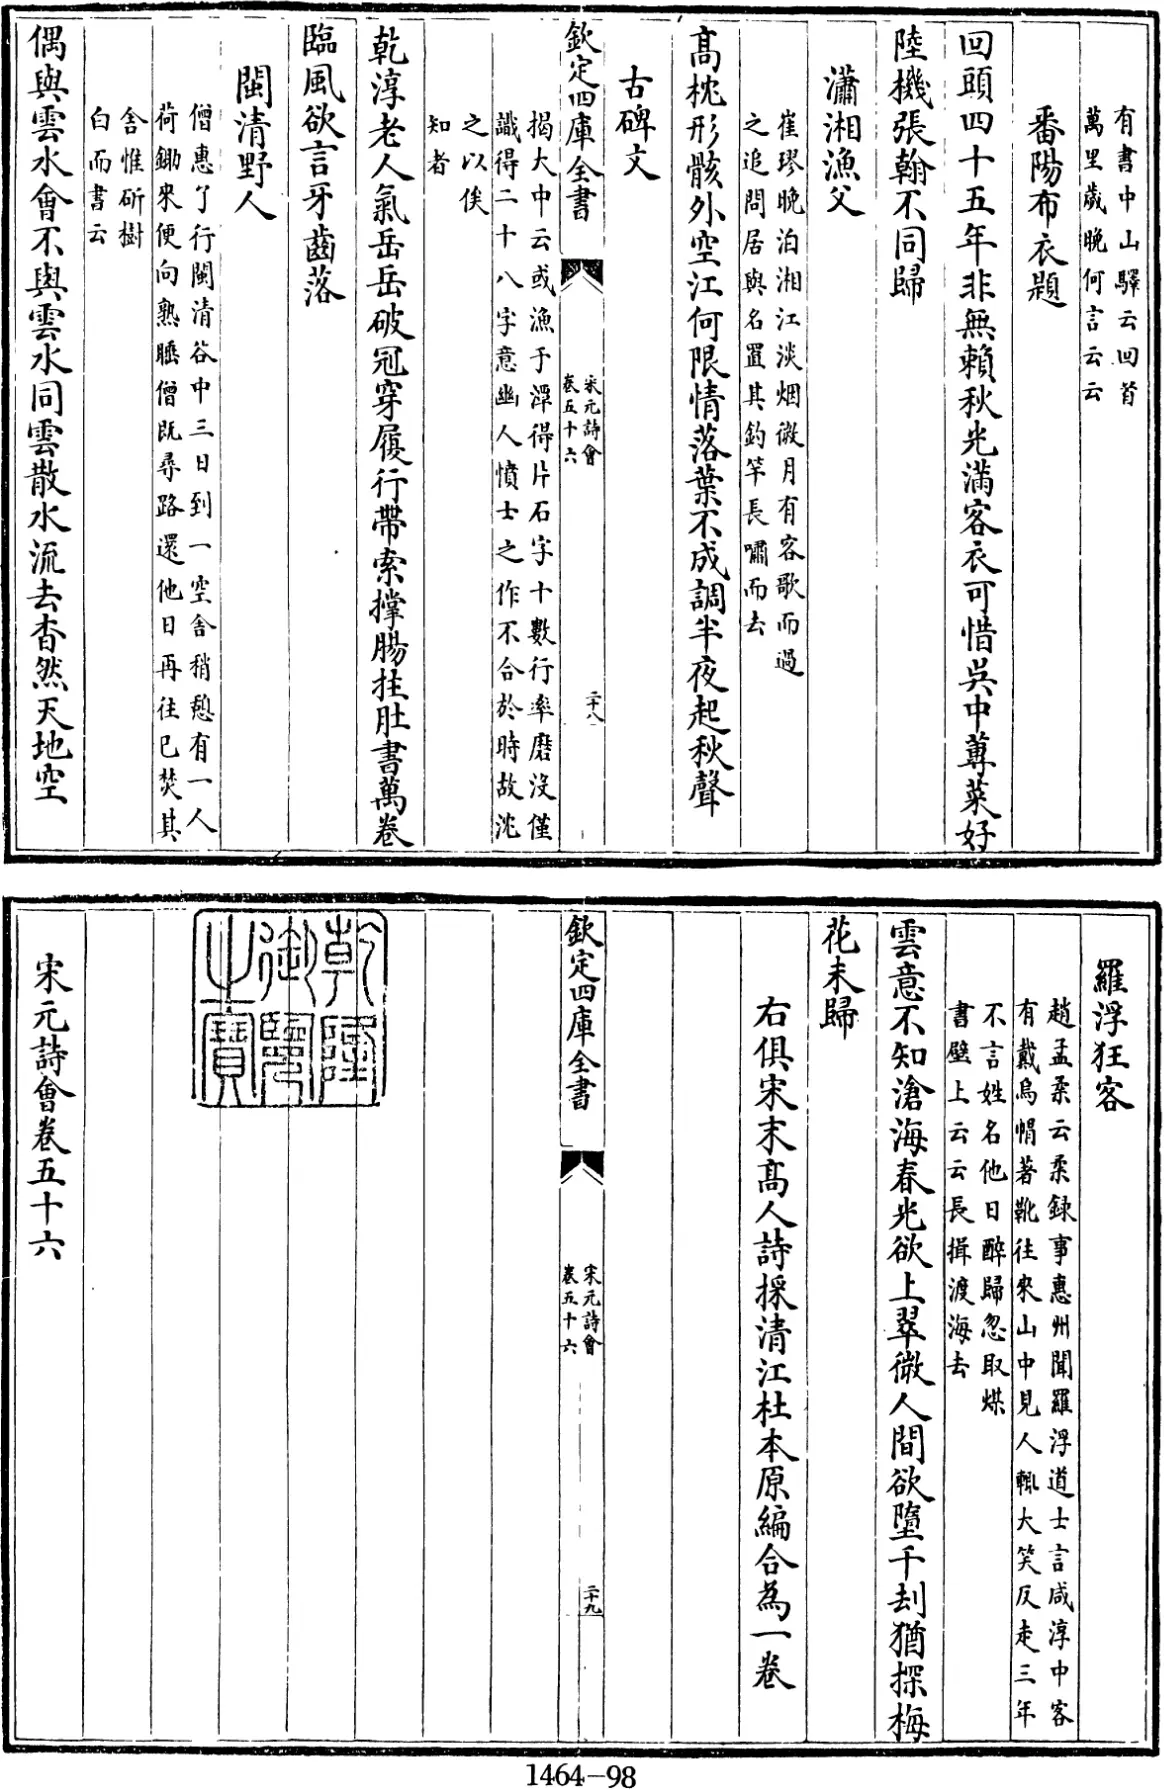 有書中山驛云回首
萬里歲晚何言云云
番陽布衣題
回頭四十五年非無賴秋光滿客衣可惜吳中蓴菜好
陸機張翰不同歸
瀟湘漁父
崔璆晚泊湘江淡烟微月有客歌而過
之追問居與名置其釣竿長嘯而去
高枕形骸外空江何限情落葉不成調半夜起秋聲
古碑文
欽定四庫全書
宋元詩會
卷五十六
二十八
揭大中云或漁于潭得片石字十數行率磨沒僅
識得二十八字意幽人憤士之作不合於時故沈
之以俟
知者
乾淳老人氣岳岳破冠穿履行帶索撑腸拄肚書萬卷
臨風欲言牙齒落
閩清野人
僧惠了行閩清谷中三日到一空舍稍憩有一人
荷鋤來便向熟睡僧既尋路還他日再往已焚其
舍惟斫樹
白而書云
偶與雲水會不與雲水同雲散水流去杳然天地空
羅浮狂客
趙孟柔云柔録事惠州聞羅浮道士言咸淳中客
有戴烏帽著靴往來山中見人輒大笑反走三年
不言姓名他日醉歸忽取煤
書壁上云云長揖渡海去
雲意不知滄海春光欲上翠微人間欲墮千刦猶探梅
花未歸
右俱宋末高人詩採清江杜本原編合為一卷
欽定四庫全書
宋元詩會
卷五十六
二十九
乾隆
御覽
之寶
宋元詩會卷五十六
1464-98